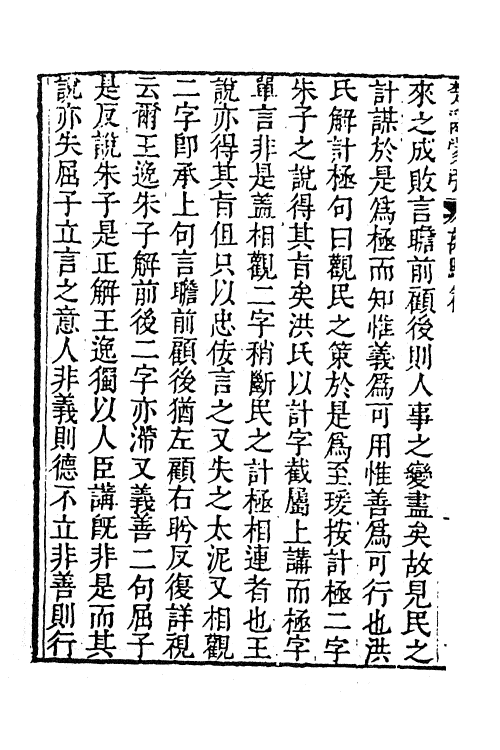 來之成敗言瞻前顧後則人事之變盡矣故見民之
計謀於是爲極而知惟義爲可用惟善爲可行也洪
氏解計極句曰觀民之策於是爲至瑗按計極二字
朱子之說得其旨矣洪氏以計字截屬上講而極字
單言非是蓋相觀二字稍斷民之計極相連者也王
說亦得其旨但只以忠佞言之又失之太泥又相觀
二字卽承上句言瞻前顧後猶左顧右盻反復詳視
云爾王逸朱子解前後二字亦滯又義善二句屈子
是反說朱子是正解王逸獨以人臣講旣非是而其
說亦失屈子立言之意人非義則德不立非善則行